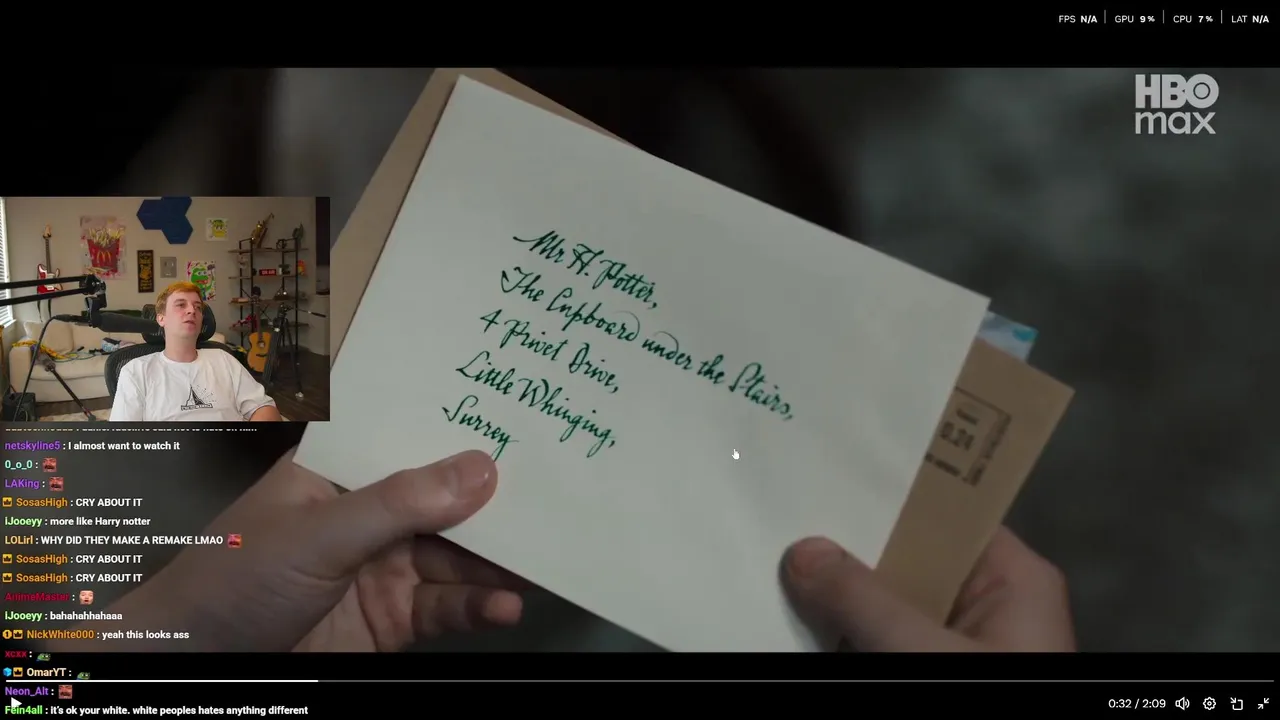 FPS N/A GPU 9 % CPU 7 % LAT N/A
HBO
max
Mr H. Potter,
The Cupboard under the Stairs,
4 Privet Drive,
Little Whinging,
Surrey
0.24
netskyline5 : I almost want to watch it
0_o_0 :
LAKing :
SosasHigh : CRY ABOUT IT
iJooeyy : more like Harry notter
LOLirl : WHY DID THEY MAKE A REMAKE LMAO
SosasHigh : CRY ABOUT IT
SosasHigh : CRY ABOUT IT
AnimeMaster :
iJooeyy : bahahahhahaaa
NickWhite000 : yeah this looks ass
xcxx :
OmarYT :
Neon_Alt :
Fein4all : it's ok your white. white peoples hates anything different
0:32 / 2:09